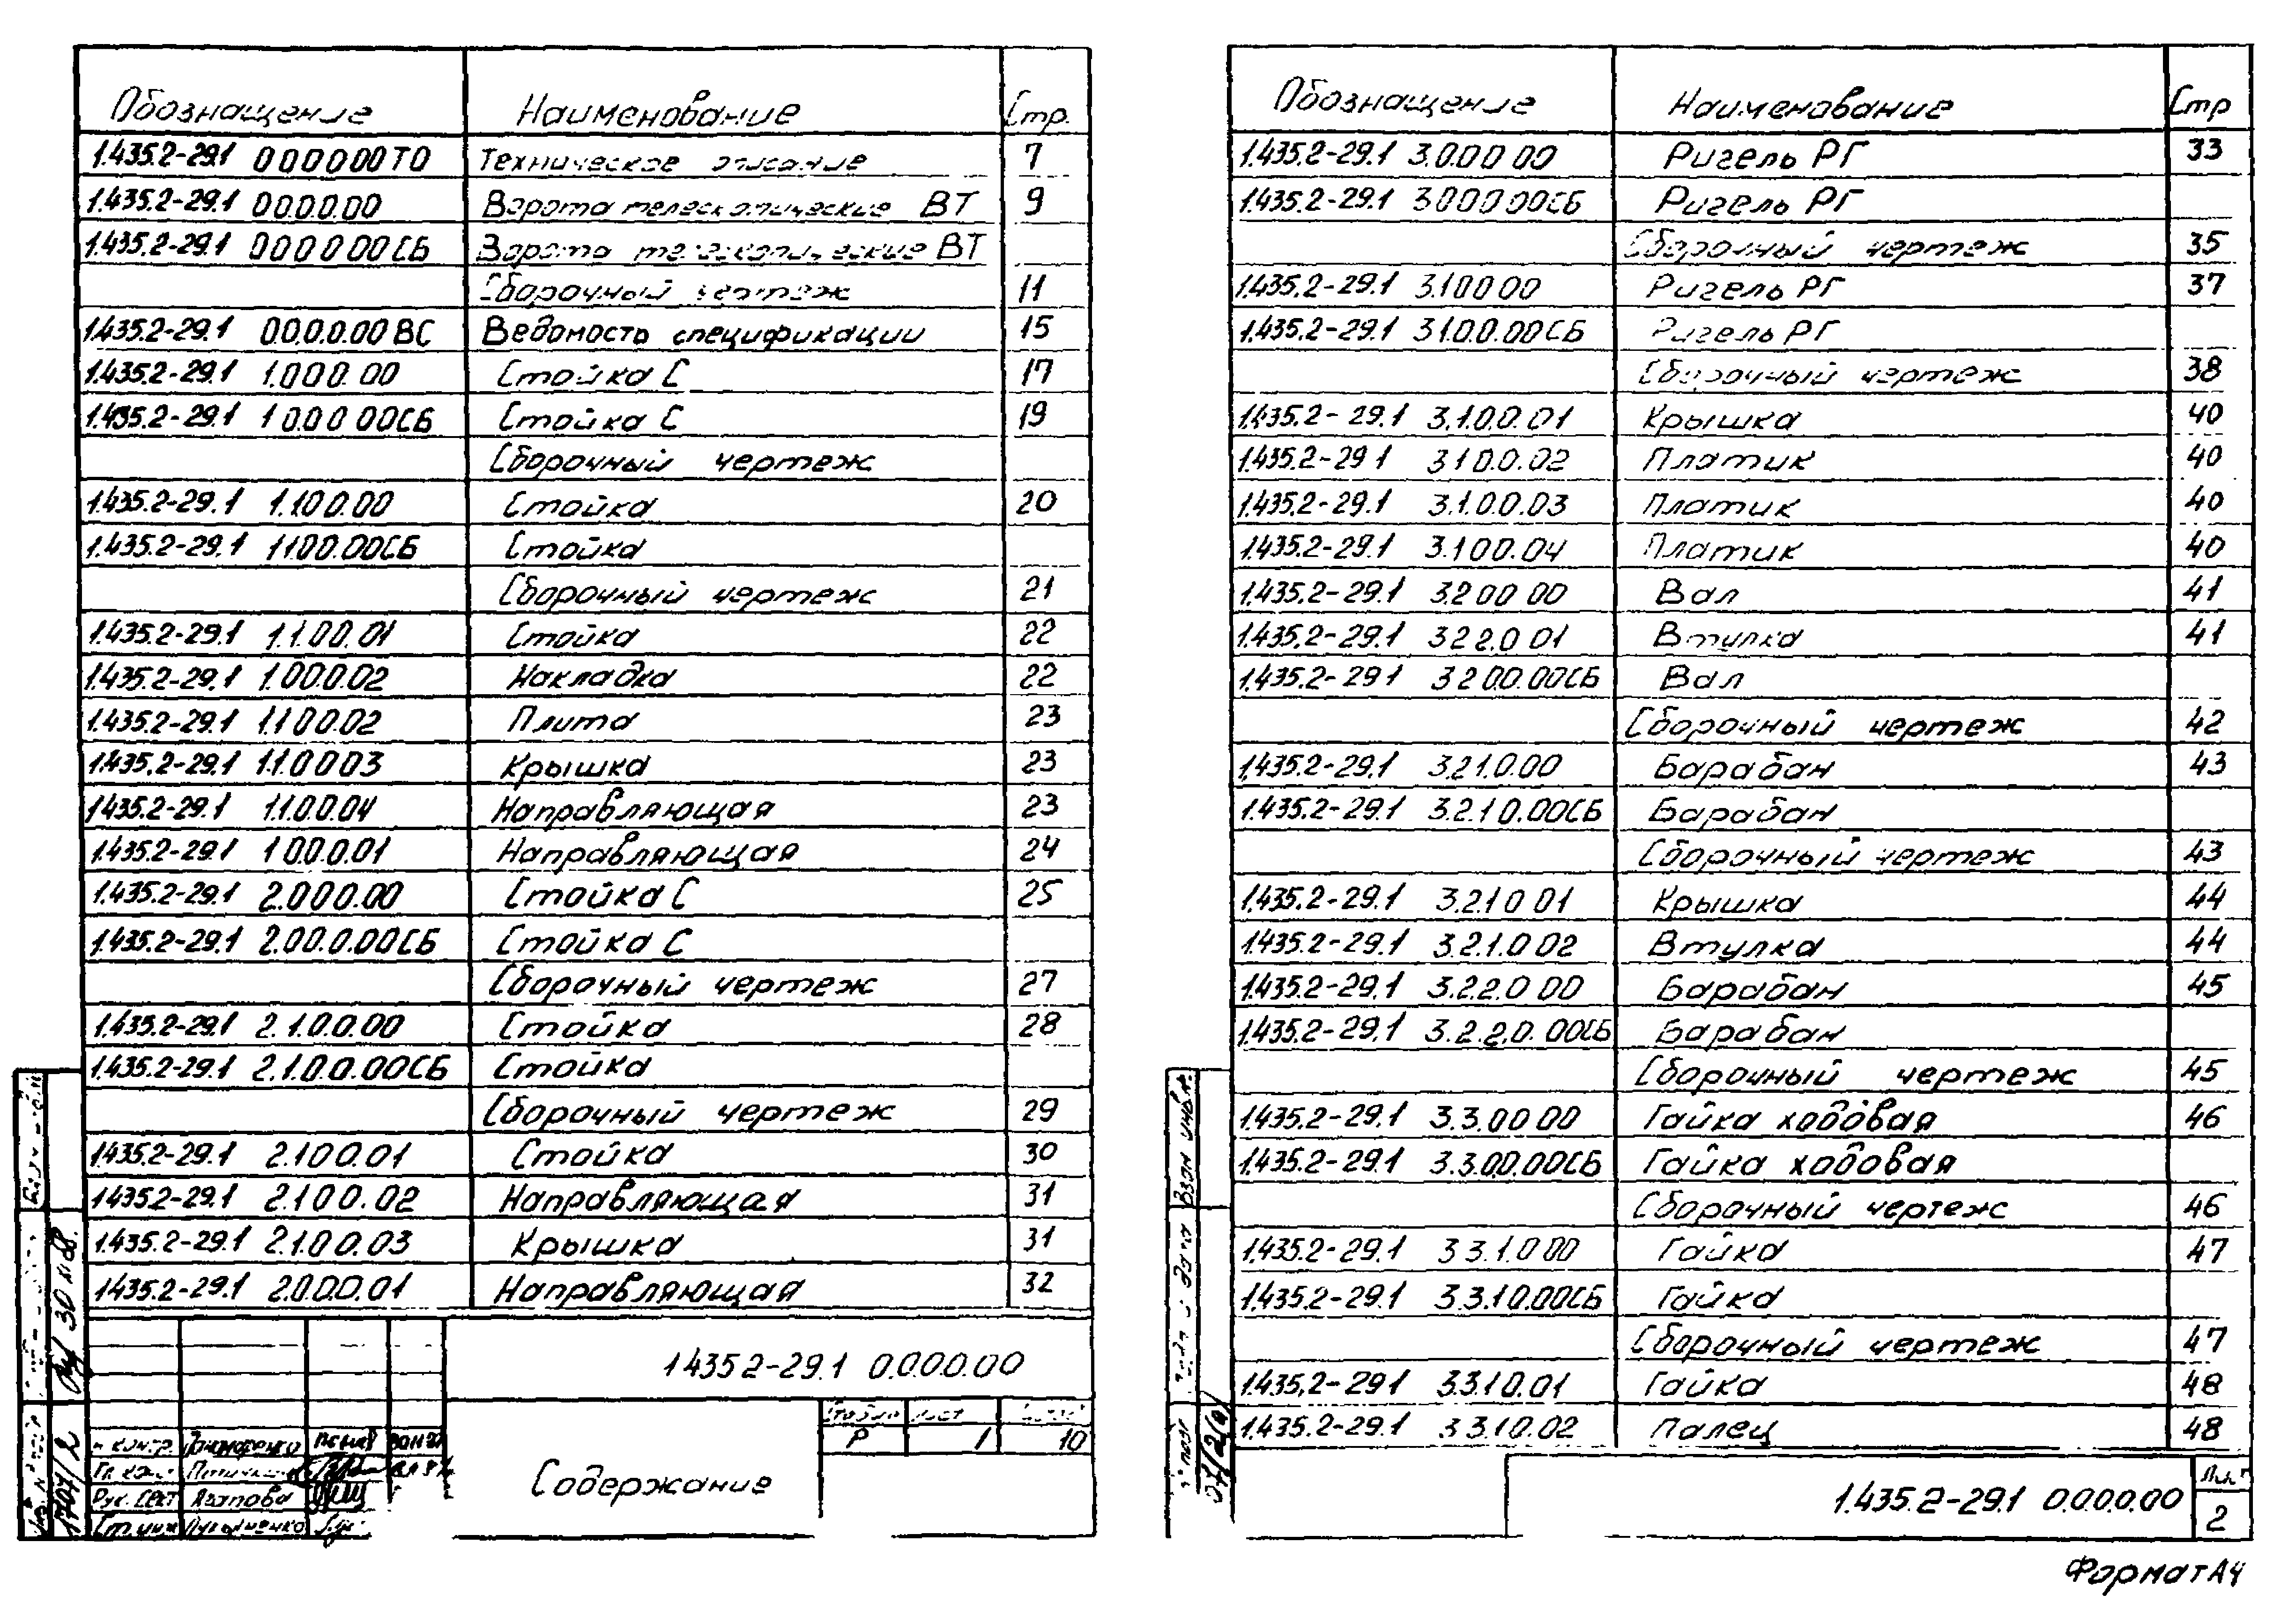 Обозначение Наименование Стр.
1.435.2-29.1 0000.00ТО Техническое описание 7
1.435.2-29.1 0.0.0.0.00 Ворота телескопические ВТ 9
1.435.2-29.1 0000.00СБ Ворота телескопические ВТ
Сборочный чертеж 11
1.435.2-29.1 0.0.0.0.00ВС Ведомость спецификации 15
1.435.2-29.1 1.000.00 Стойка С 17
1.435.2-29.1 1000.00СБ Стойка С 19
Сборочный чертеж
1.435.2-29.1 1.100.00 Стойка 20
1.435.2-29.1 1100.00СБ Стойка
Сборочный чертеж 21
1.435.2-29.1 1.1.00.01 Стойка 22
1.435.2-29.1 1.00.0.02 Накладка 22
1.435.2-29.1 1.100.02 Плита 23
1.435.2-29.1 1.1.0003 Крышка 23
1.435.2-29.1 1.1.0.0.04 Направляющая 23
1.435.2-29.1 1000.01 Направляющая 24
1.435.2-29.1 2.000.00 Стойка С 25
1.435.2-29.1 2.00.0.00СБ Стойка С
Сборочный чертеж 27
1.435.2-29.1 2.1.0.0.00 Стойка 28
1.435.2-29.1 2.1.0.0.00СБ Стойка
Сборочный чертеж 29
1.435.2-29.1 2.100.01 Стойка 30
1.435.2-29.1 2.100.02 Направляющая 31
1.435.2-29.1 2.1.00.03 Крышка 31
1.435.2-29.1 2.0.0.0.01 Направляющая 32
1.435 2-29.1 0.0.0.0.00
Р 1 10
Содержание
Н. контр.
Рук. сект Агапова
Ст. инж
Обозначение Наименование Стр
1.435.2-29.1 3.0.00 00 Ригель РГ 33
1.435.2-29.1 3000.00СБ Ригель РГ
Сборочный чертеж 35
1.435.2-29.1 3.100 00 Ригель РГ 37
1.435.2-29.1 3.1.0.0.00СБ Ригель РГ
Сборочный чертеж 38
1.435.2-29.1 3.1.0.0.01 Крышка 40
1.435.2-29 1 3 1 0.0.02 Платик 40
1.435.2-29.1 3.1.0.0.03 Платик 40
1.435.2-29.1 3.100.04 Платик 40
1.435.2-29.1 3.200 00 Вал 41
1.435.2-29.1 3 2 2.0 01 Втулка 41
1.435.2-29 1 3 2 0.0.00СБ Вал
Сборочный чертеж 42
1.435.2-29.1 3.2.1.0.00 Барабан 43
1.435.2-29.1 3.2.1 0.00СБ Барабан
Сборочный чертеж 43
1.435.2-29.1 3.2.1 0 01 Крышка 44
1.435.2-29.1 3.2.1.0 02 Втулка 44
1.435.2-29.1 3.2.2.0 00 Барабан 45
1.435.2-29.1 3.2.2.0.00СБ Барабан
Сборочный чертеж 45
1.435.2-29.1 3.3.00 00 Гайка ходовая 46
1.435.2-29.1 3.3.0.0.00СБ Гайка ходовая
Сборочный чертеж 46
1.435.2-29.1 3 3.1.0 00 Гайка 47
1.435.2-29.1 3.3.1 0.00СБ Гайка
Сборочный чертеж 47
1.435.2-29 1 3.3.1 0.01 Гайка 48
1.435.2-29.1 3 3.1 0.02 Палец 48
1.435.2-29.1 0.0.0.0.00
Лист
2
Формат А4